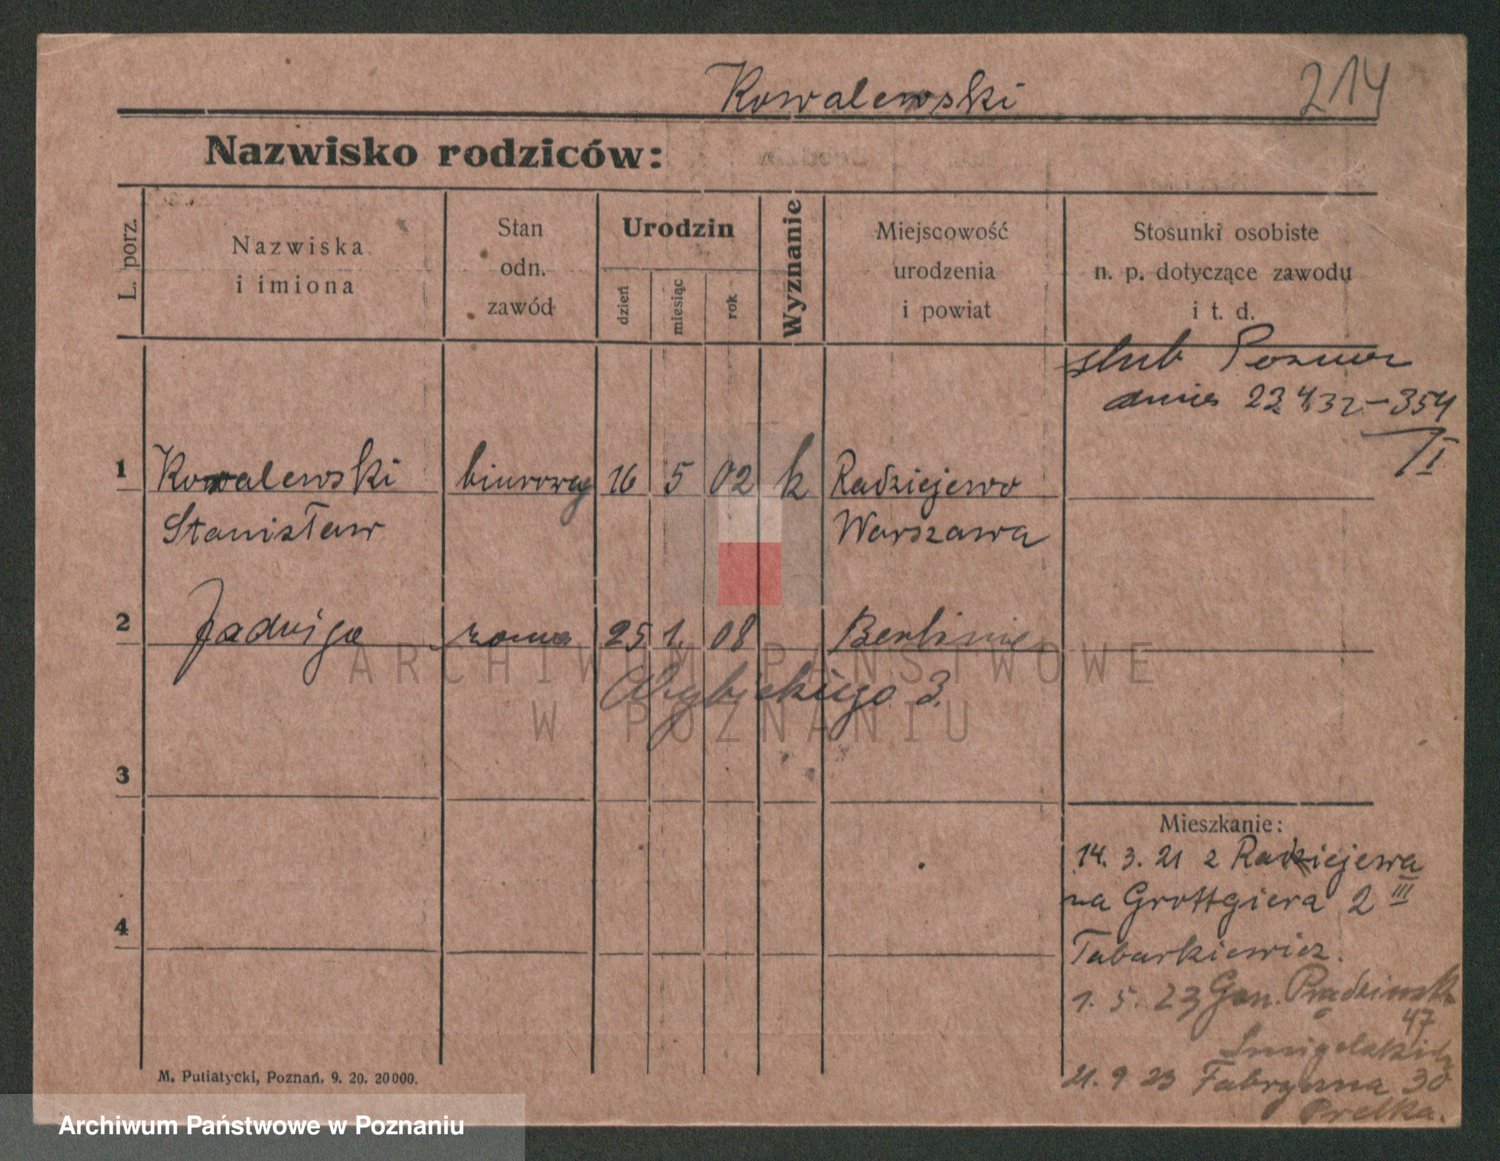 Kowalewski 214
Nazwisko rodziców:
L. porz.
Nazwiska
i imiona
Stan
odn.
zawód
Urodzin
dzień
miesiąc
rok
Wyznanie
Miejscowość
urodzenia
i powiat
Stosunki osobiste
n. p. dotyczące zawodu
i t. d.
ślub
dnia 23 4 32 - 354
I
1 Kowalewski biurowy 16 5 02 k Radziejewo
Stanisław Warszawa
2 Jadwiga żona 25 1. 08
3.
ARCHIWUM PAŃSTWOWE
W POZNANIU
3
Mieszkanie:
14. 3. 21 z Radziejewa
na Grottgiera 2 III
Tabarkiewicz.
1. 5. 23 Gen. Prądzińsk
47
4
21. 9 23 Fabryczna 30
Prelka.
M. Putiatycki, Poznań. 9. 20. 20000.
Archiwum Państwowe w Poznaniu